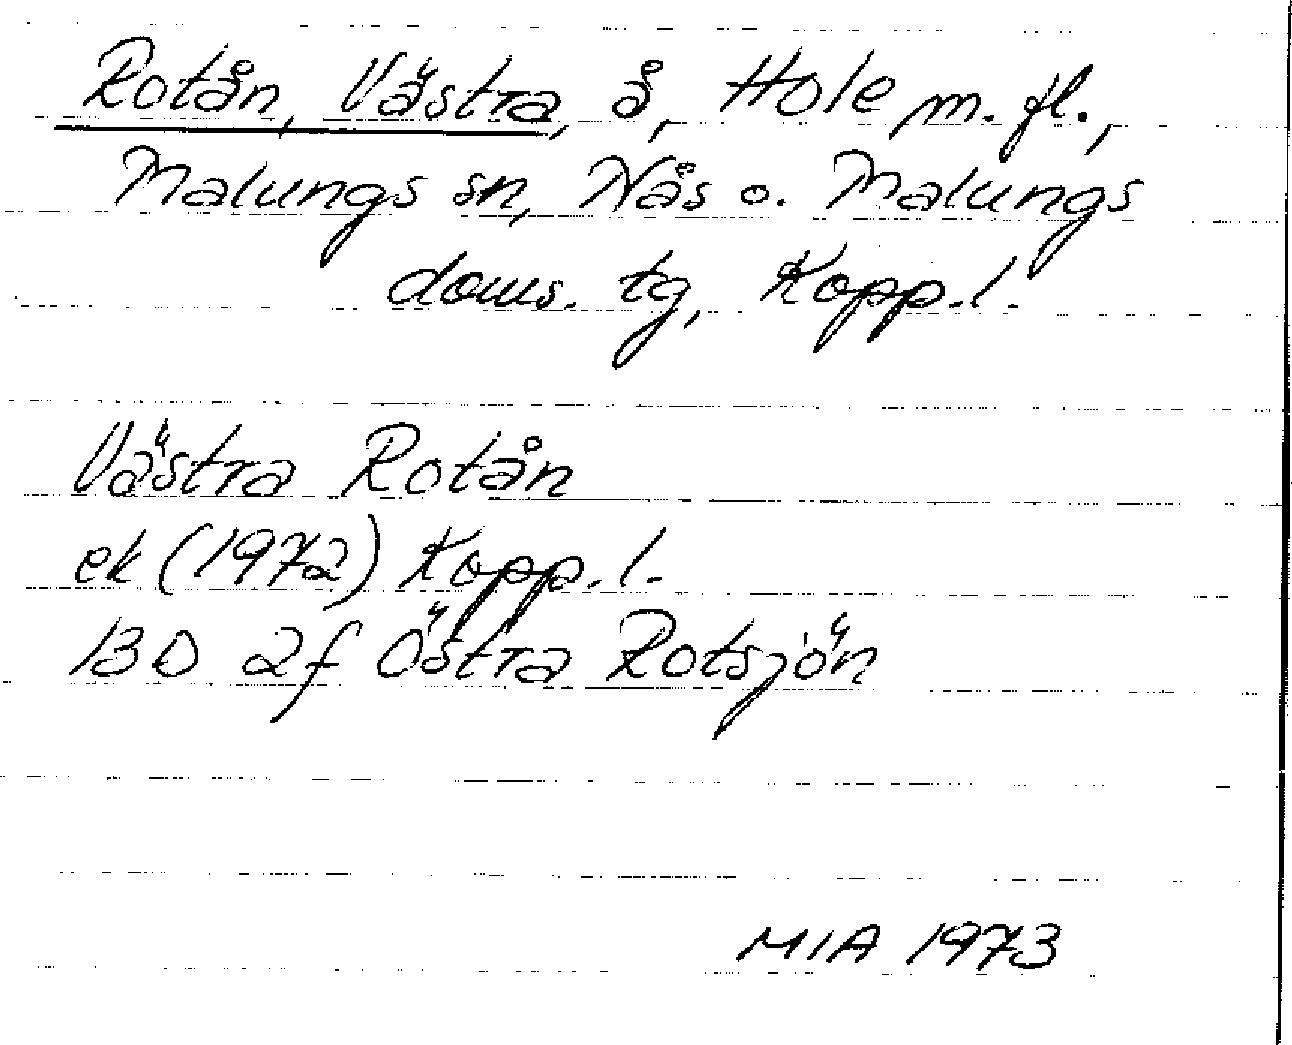 Rotån, Västra, å, Hole m. fl.,
Malungs sn, Nås o. Malungs
doms. tg, Kopp. l.
Västra Rotån
ek (1972) Kopp. l.
13D 2f Östra Rotsjön
MIA 1973